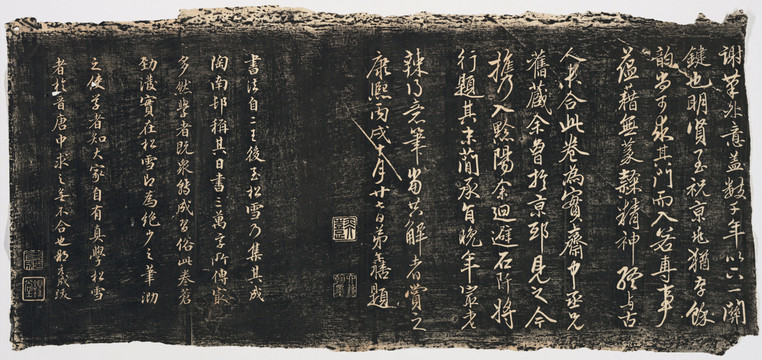 謝華外意蓋數千年以六一關
鍵也明賢至祝京兆猶存餘
韵尚可求其門而入若專事
蘊藉無蒙隸精神殊與古
人未合此卷為實齋中丞兄
舊藏余曾於京邸見之今
攜入黔陽余迴避石阡將
行題其末蘭承旨晚年最老
辣得意筆當共解者賞之
康熙丙戌十月廿七日弟 題
書法自二王後至松雪乃集其成
陶南邨稱其日書三萬字所傳最
多然學者既眾能成習俗此卷蒼
勁濃實在松雪即為絕少之筆泐
之使學者知大家自有真學松雪
者於晉唐中求之無不合也 跋